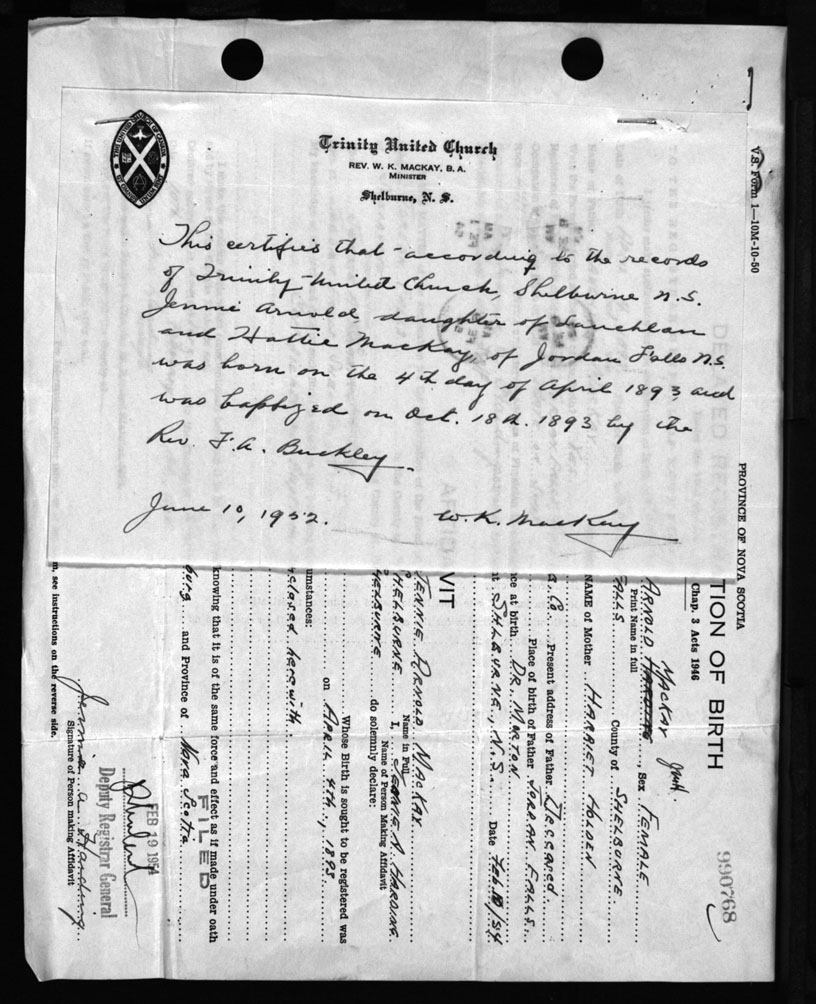 Trinity United Church
REV. W. K. MACKAY, B. A.
MINISTER
Shelburne, N. S.
This certifies that according to the records
of Trinity United Church, Shelburne N.S.
Jennie Arnold daughter of Lauchlan
and Hattie MacKay, of Jordan Falls N.S.
was born on the 4th day of April 1893 and
was baptized on Oct. 18th. 1893 by the
Rev. F. A. Buckley.
June 10, 1952. W. K. MacKay
V.S. Form 1—10M-10-50
PROVINCE OF NOVA SCOTIA
TION OF BIRTH
Chap. 3 Acts 1946
990768
MACKAY
ARNOLD HARDING, Sex FEMALE
Print Name in full
FALLS County of SHELBURNE
NAME of Mother HARRIET HOLDEN
Co. Present address of Father DECEASED
Place of birth of Father JORDAN FALLS
nce at birth DR. MORTON
at SHLBURNE, N.S. Date FEB 10/54
VIT
JENNIE ARNOLD MACKAY
Name in Full
SHELBURNE I, JENNIE A. HARDING
Name of Person Making Affidavit
SHELBURNE do solemnly declare:
Whose Birth is sought to be registered was
on APRIL 4TH, 1893
umstances:
nclosed herewith.
knowing that it is of the same force and effect as if made under oath
FILED
burg and Province of Nova Scotia
FEB 19 1954
Deputy Registrar General
Jennie A Harding
Signature of Person making Affidavit
m, see instructions on the reverse side.